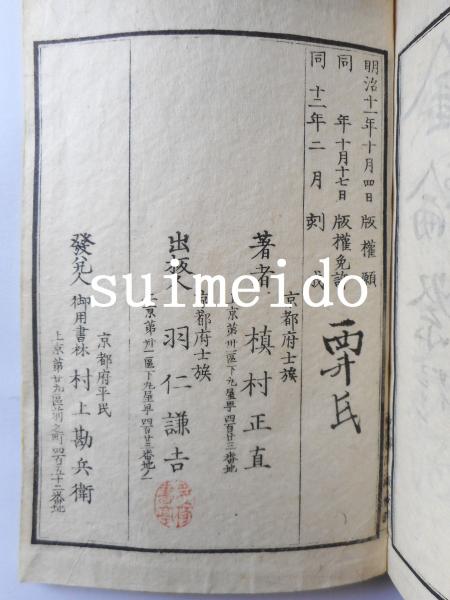 明治十一年十月四日版權願
同年十月十七日版權免許
同十二年二月刻成
京都府士族
著者 槙村正直
上京第卅一區下丸屋町四百廿三番地
京都府士族
出版人 羽仁謙吉
上京第卅一區下丸屋町四百廿三番地
京都府平民
發兌人 御用書林 村上勘兵衛
上京第廿九區
町四百五十二番地
suimeido